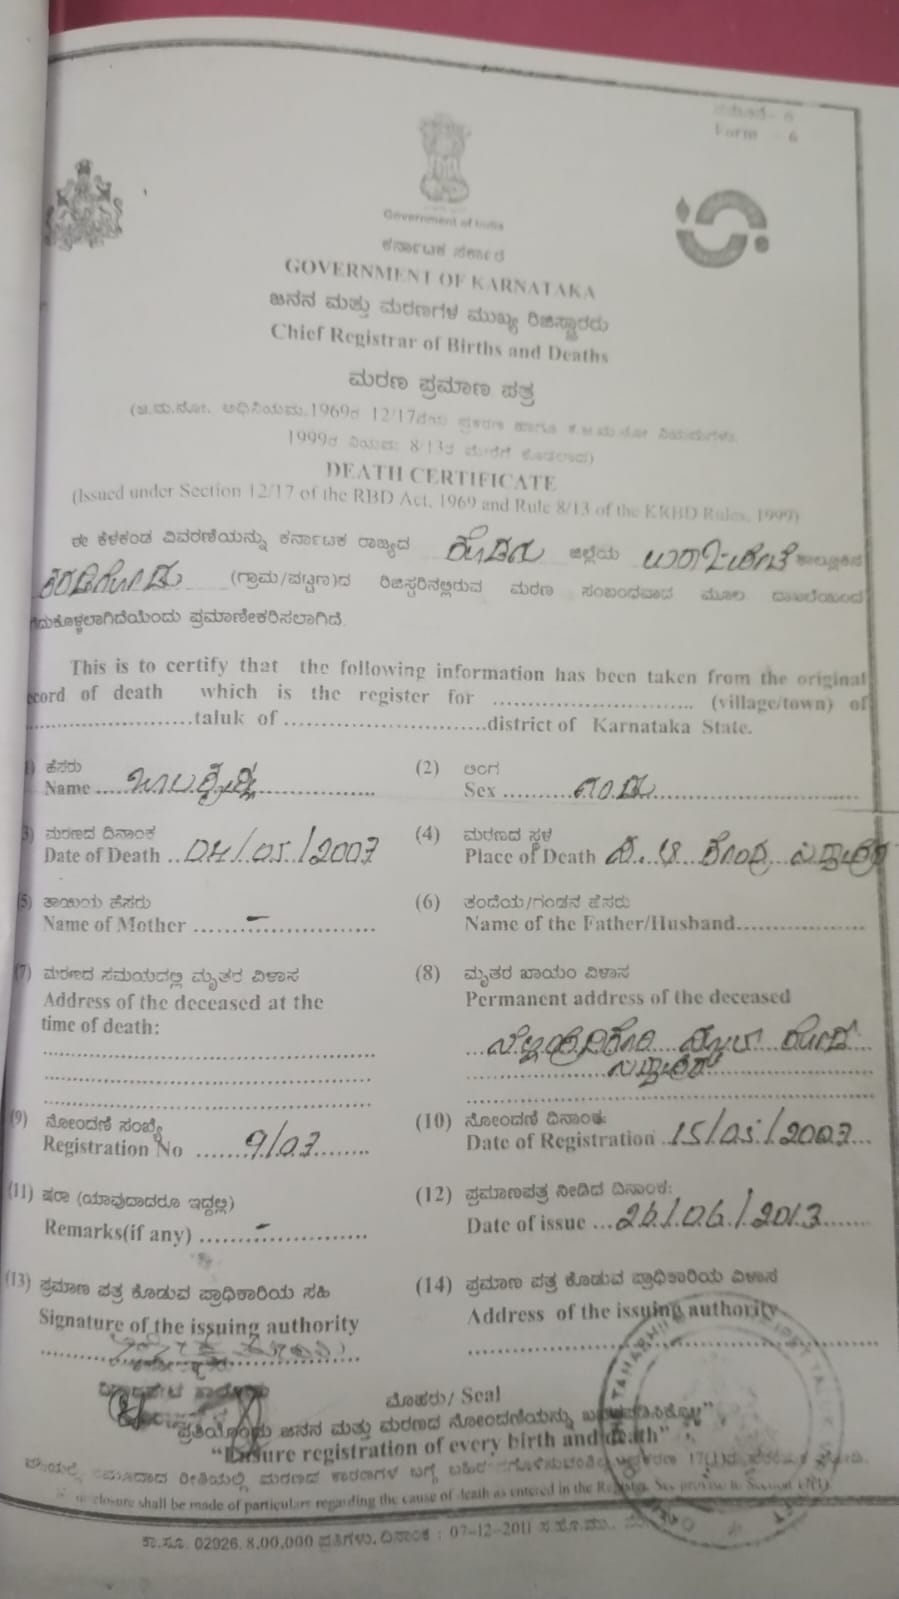 Form - 6
Government of India
ಕರ್ನಾಟಕ ಸರ್ಕಾರ
GOVERNMENT OF KARNATAKA
ಜನನ ಮತ್ತು ಮರಣಗಳ ಮುಖ್ಯ ರಿಜಿಸ್ಟ್ರಾರರು
Chief Registrar of Births and Deaths
ಮರಣ ಪ್ರಮಾಣ ಪತ್ರ
(ಜ.ಮ.ನೋ. ಅಧಿನಿಯಮ.1969ರ 12/17ರ
1999ರ ನಿಯಮ 8/13ರ ಮೇರೆಗೆ ಕೊಡಲಾದ)
DEATH CERTIFICATE
(Issued under Section 12/17 of the RBD Act, 1969 and Rule 8/13 of the KRBD Rules, 1999)
ಈ ಕೆಳಕಂಡ ವಿವರಣೆಯನ್ನು ಕರ್ನಾಟಕ ರಾಜ್ಯದ ಕೊಡಗು ಜಿಲ್ಲೆಯ ತಾಲ್ಲೂಕಿನ
(ಗ್ರಾಮ/ಪಟ್ಟಣ)ದ ರಿಜಿಸ್ಟರಿನಲ್ಲಿರುವ ಮರಣ ಸಂಬಂಧವಾದ ಮೂಲ ದಾಖಲೆಯಿಂದ
ತೆಗೆದುಕೊಳ್ಳಲಾಗಿದೆಯೆಂದು ಪ್ರಮಾಣೀಕರಿಸಲಾಗಿದೆ.
This is to certify that the following information has been taken from the original
record of death which is the register for .............................. (village/town) of
.........................taluk of ..............................district of Karnataka State.
1) ಹೆಸರು
Name ..... ಬಾಲಕೃಷ್ಣ ..................
(2) ಲಿಂಗ
Sex .......... ಗಂಡು ..............................
3) ಮರಣದ ದಿನಾಂಕ
Date of Death .. 04/05/2007
(4) ಮರಣದ ಸ್ಥಳ
Place of Death
(5) ತಾಯಿಯ ಹೆಸರು
Name of Mother ....–....................
(6) ತಂದೆಯ/ಗಂಡನ ಹೆಸರು
Name of the Father/Husband...................
(7) ಮರಣದ ಸಮಯದಲ್ಲಿ ಮೃತರ ವಿಳಾಸ
Address of the deceased at the
time of death:
(8) ಮೃತರ ಖಾಯಂ ವಿಳಾಸ
Permanent address of the deceased
(9) ನೋಂದಣಿ ಸಂಖ್ಯೆ
Registration No ....... 9/07 ........
(10) ನೋಂದಣಿ ದಿನಾಂಕ
Date of Registration 15/05/2007...
(11) ಷರಾ (ಯಾವುದಾದರೂ ಇದ್ದಲ್ಲಿ)
Remarks(if any) ........–................
(12) ಪ್ರಮಾಣಪತ್ರ ನೀಡಿದ ದಿನಾಂಕ:
Date of issue ... 26/06/2013.......
(13) ಪ್ರಮಾಣ ಪತ್ರ ಕೊಡುವ ಪ್ರಾಧಿಕಾರಿಯ ಸಹಿ
Signature of the issuing authority
(14) ಪ್ರಮಾಣ ಪತ್ರ ಕೊಡುವ ಪ್ರಾಧಿಕಾರಿಯ ವಿಳಾಸ
Address of the issuing authority
ಮೊಹರು/ Seal
"ಪ್ರತಿಯೊಂದು ಜನನ ಮತ್ತು ಮರಣದ ನೋಂದಣಿಯನ್ನು
"Ensure registration of every birth and death"
ರೀತಿಯಲ್ಲಿ ಮರಣದ ಕಾರಣಗಳ ಬಗ್ಗೆ
disclosure shall be made of particulars regarding the cause of death as entered in the Register. See proviso to Section 17(1)
ಕಾ.ಸೂ. 02926, 8,00,000 ಪ್ರತಿಗಳು, ದಿನಾಂಕ : 07-12-2011